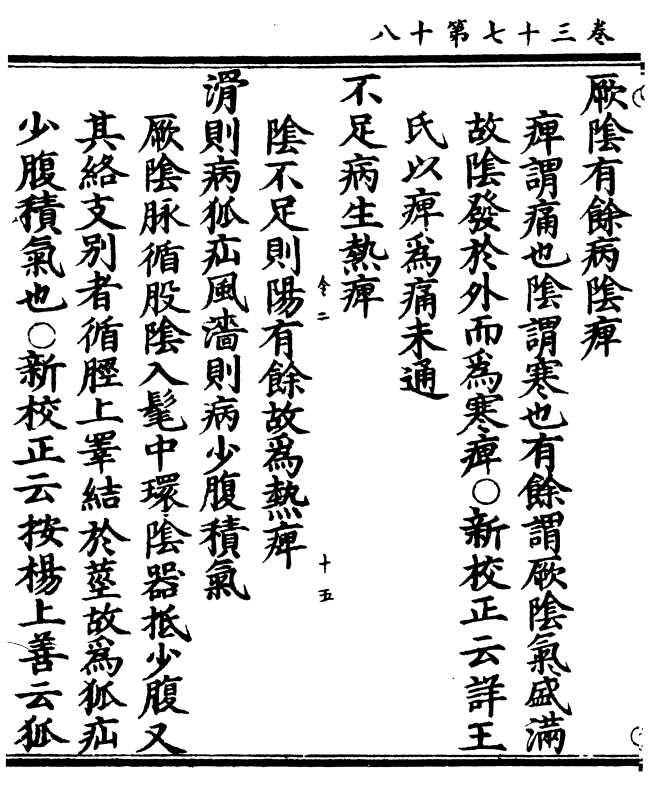 卷三十七第十八
厥陰有餘病陰痺
痺謂痛也陰謂寒也有餘謂厥陰氣盛滿
故陰發於外而爲寒痺○新校正云詳王
氏以痺爲痛未通
不足病生熱痺
陰不足則陽有餘故爲熱痺
滑則病狐疝風濇則病少腹積氣
厥陰脉循股陰入髦中環陰器抵少腹又
其絡支别者循脛上睪結於莖故爲狐疝
少腹積氣也○新校正云按楊上善云狐
令二
十五